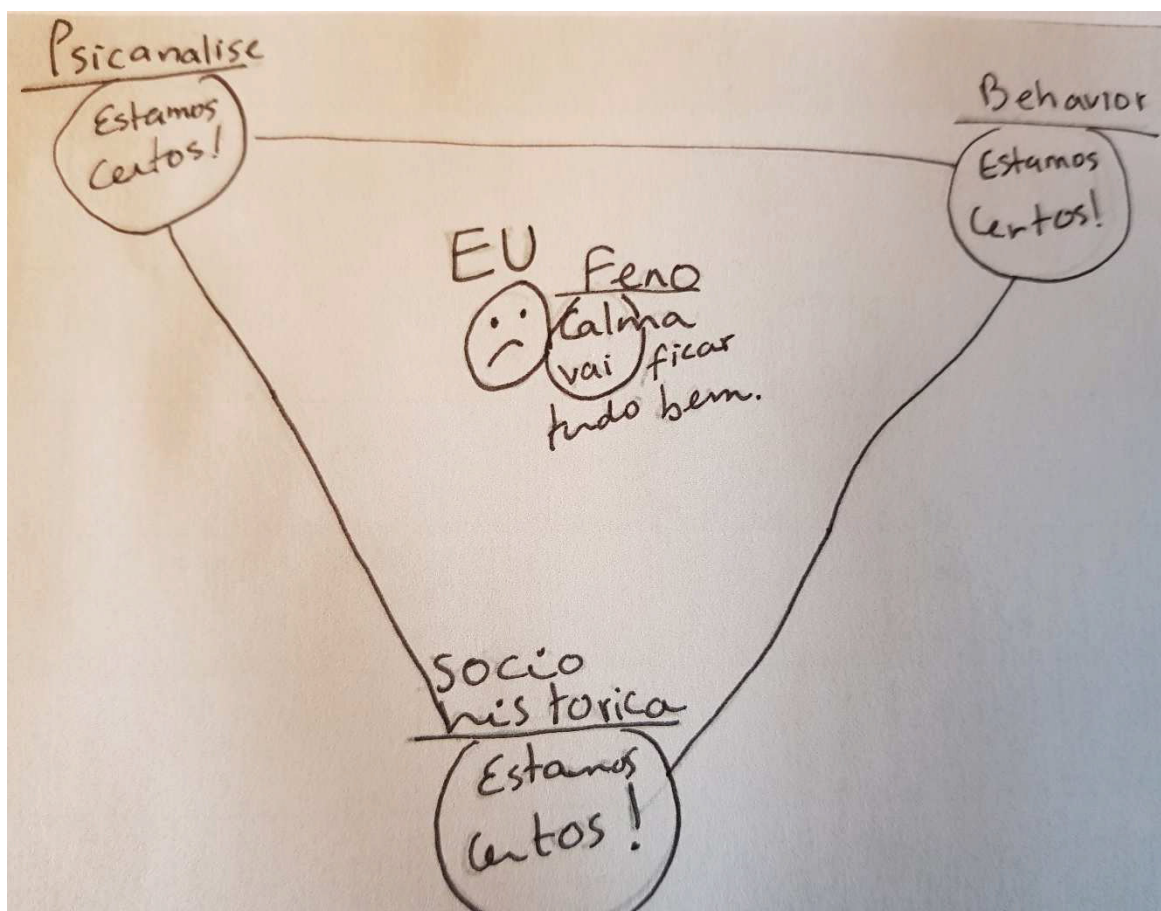 Psicanalise
Estamos
Certos!
Behavior
Estamos
Certos!
EU
Feno
Calma
vai ficar
tudo bem.
Socio
historica
Estamos
Certos!